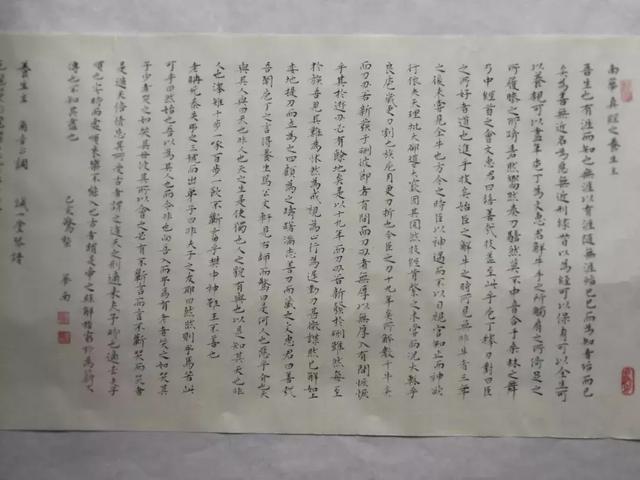 南華真經之養生主
吾生也有涯而知也無涯以有涯隨無涯殆已已而為知者殆而已
矣為善無近名為惡無近刑緣督以為經可以保身可以全生可
以養親可以盡年庖丁為文惠君解牛手之所觸肩之所倚足之
所履膝之所踦砉然嚮然奏刀騞然莫不中音合于桑林之舞
乃中經首之會文惠君曰譆善哉技蓋至此乎庖丁釋刀對曰臣
之所好者道也進乎技矣始臣之解牛之時所見無非牛者三年
之後未嘗見全牛也方今之時臣以神遇而不以目視官知止而神欲
行依乎天理批大郤導大窾因其固然技經肯綮之未嘗而況大軱乎
良庖歲更刀割也族庖月更刀折也今臣之刀十九年矣所解數千牛矣
而刀刃若新發于硎彼節者有閒而刀刃者無厚以無厚入有閒恢恢
乎其於遊刃必有餘地矣是以十九年而刀刃若新發於硎雖然每至
於族吾見其難為怵然為戒視為止行為遲動刀甚微謋然已解如土
委地提刀而立為之四顧為之躊躇滿志善刀而藏之文惠君曰善哉
吾聞庖丁之言得養生焉公文軒見右師而驚曰是何人也惡乎介也天
與其人與曰天也非人也天之生是使獨也人之貌有與也以是知其天也非
人也澤雉十步一啄百步一飲不蘄畜乎樊中神雖王不善也
老聃死秦失弔之三號而出弟子曰非夫子之友耶曰然然則弔焉若此
可乎曰然始也吾以為其人也而今非也向吾入而弔焉有老者哭之如哭其
子少者哭之如哭其母彼其所以會之必有不蘄言而言不蘄哭而哭者
是遁天倍情忘其所受古者謂之遁天之刑適來夫子時也適去夫子
順也安時而處順哀樂不能入也古者謂是帝之縣解指窮於為薪火
傳也不知其盡也
己亥驚蟄 夢南
養生主 角音古調 誠一堂琴譜